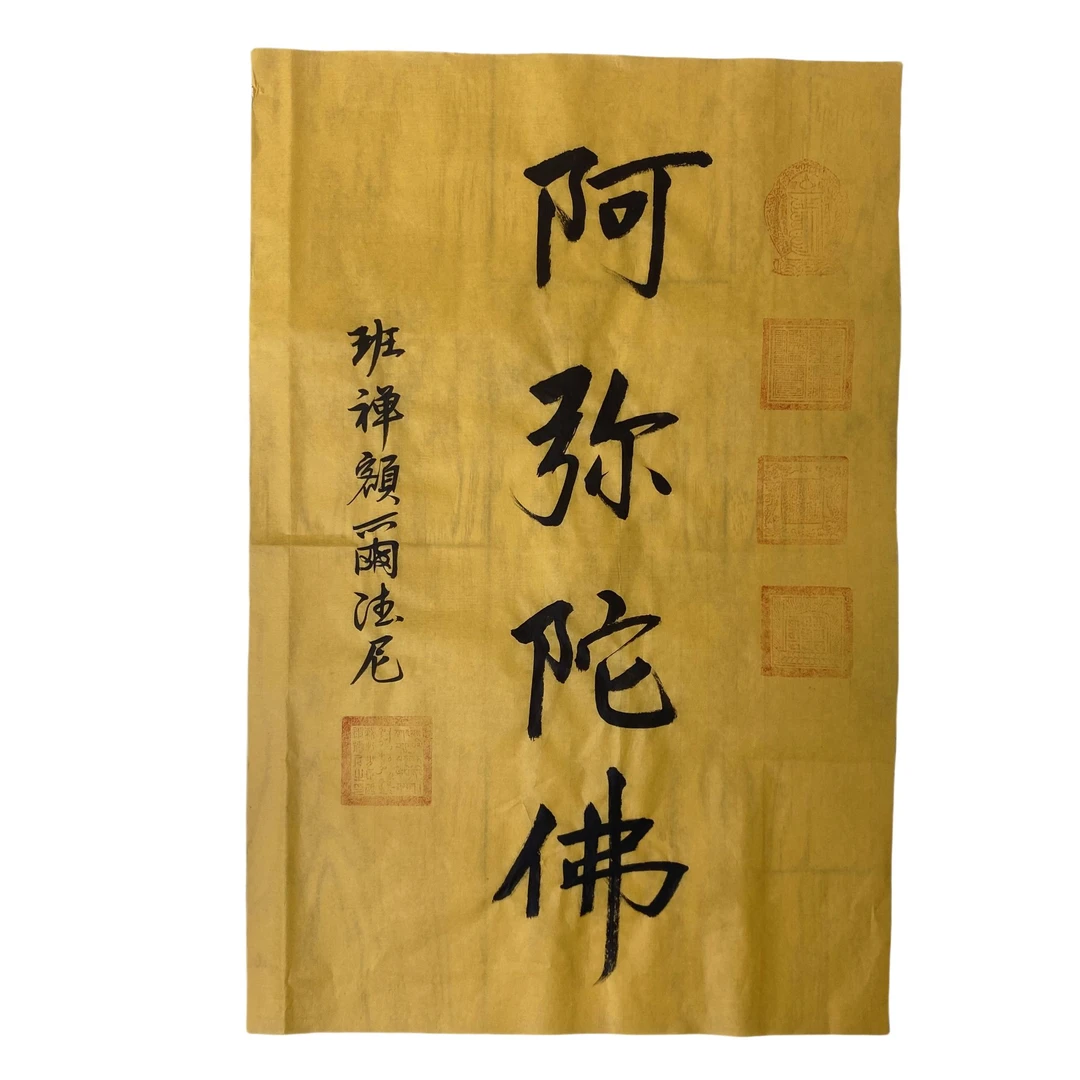 阿弥陀佛
班禅額爾德尼